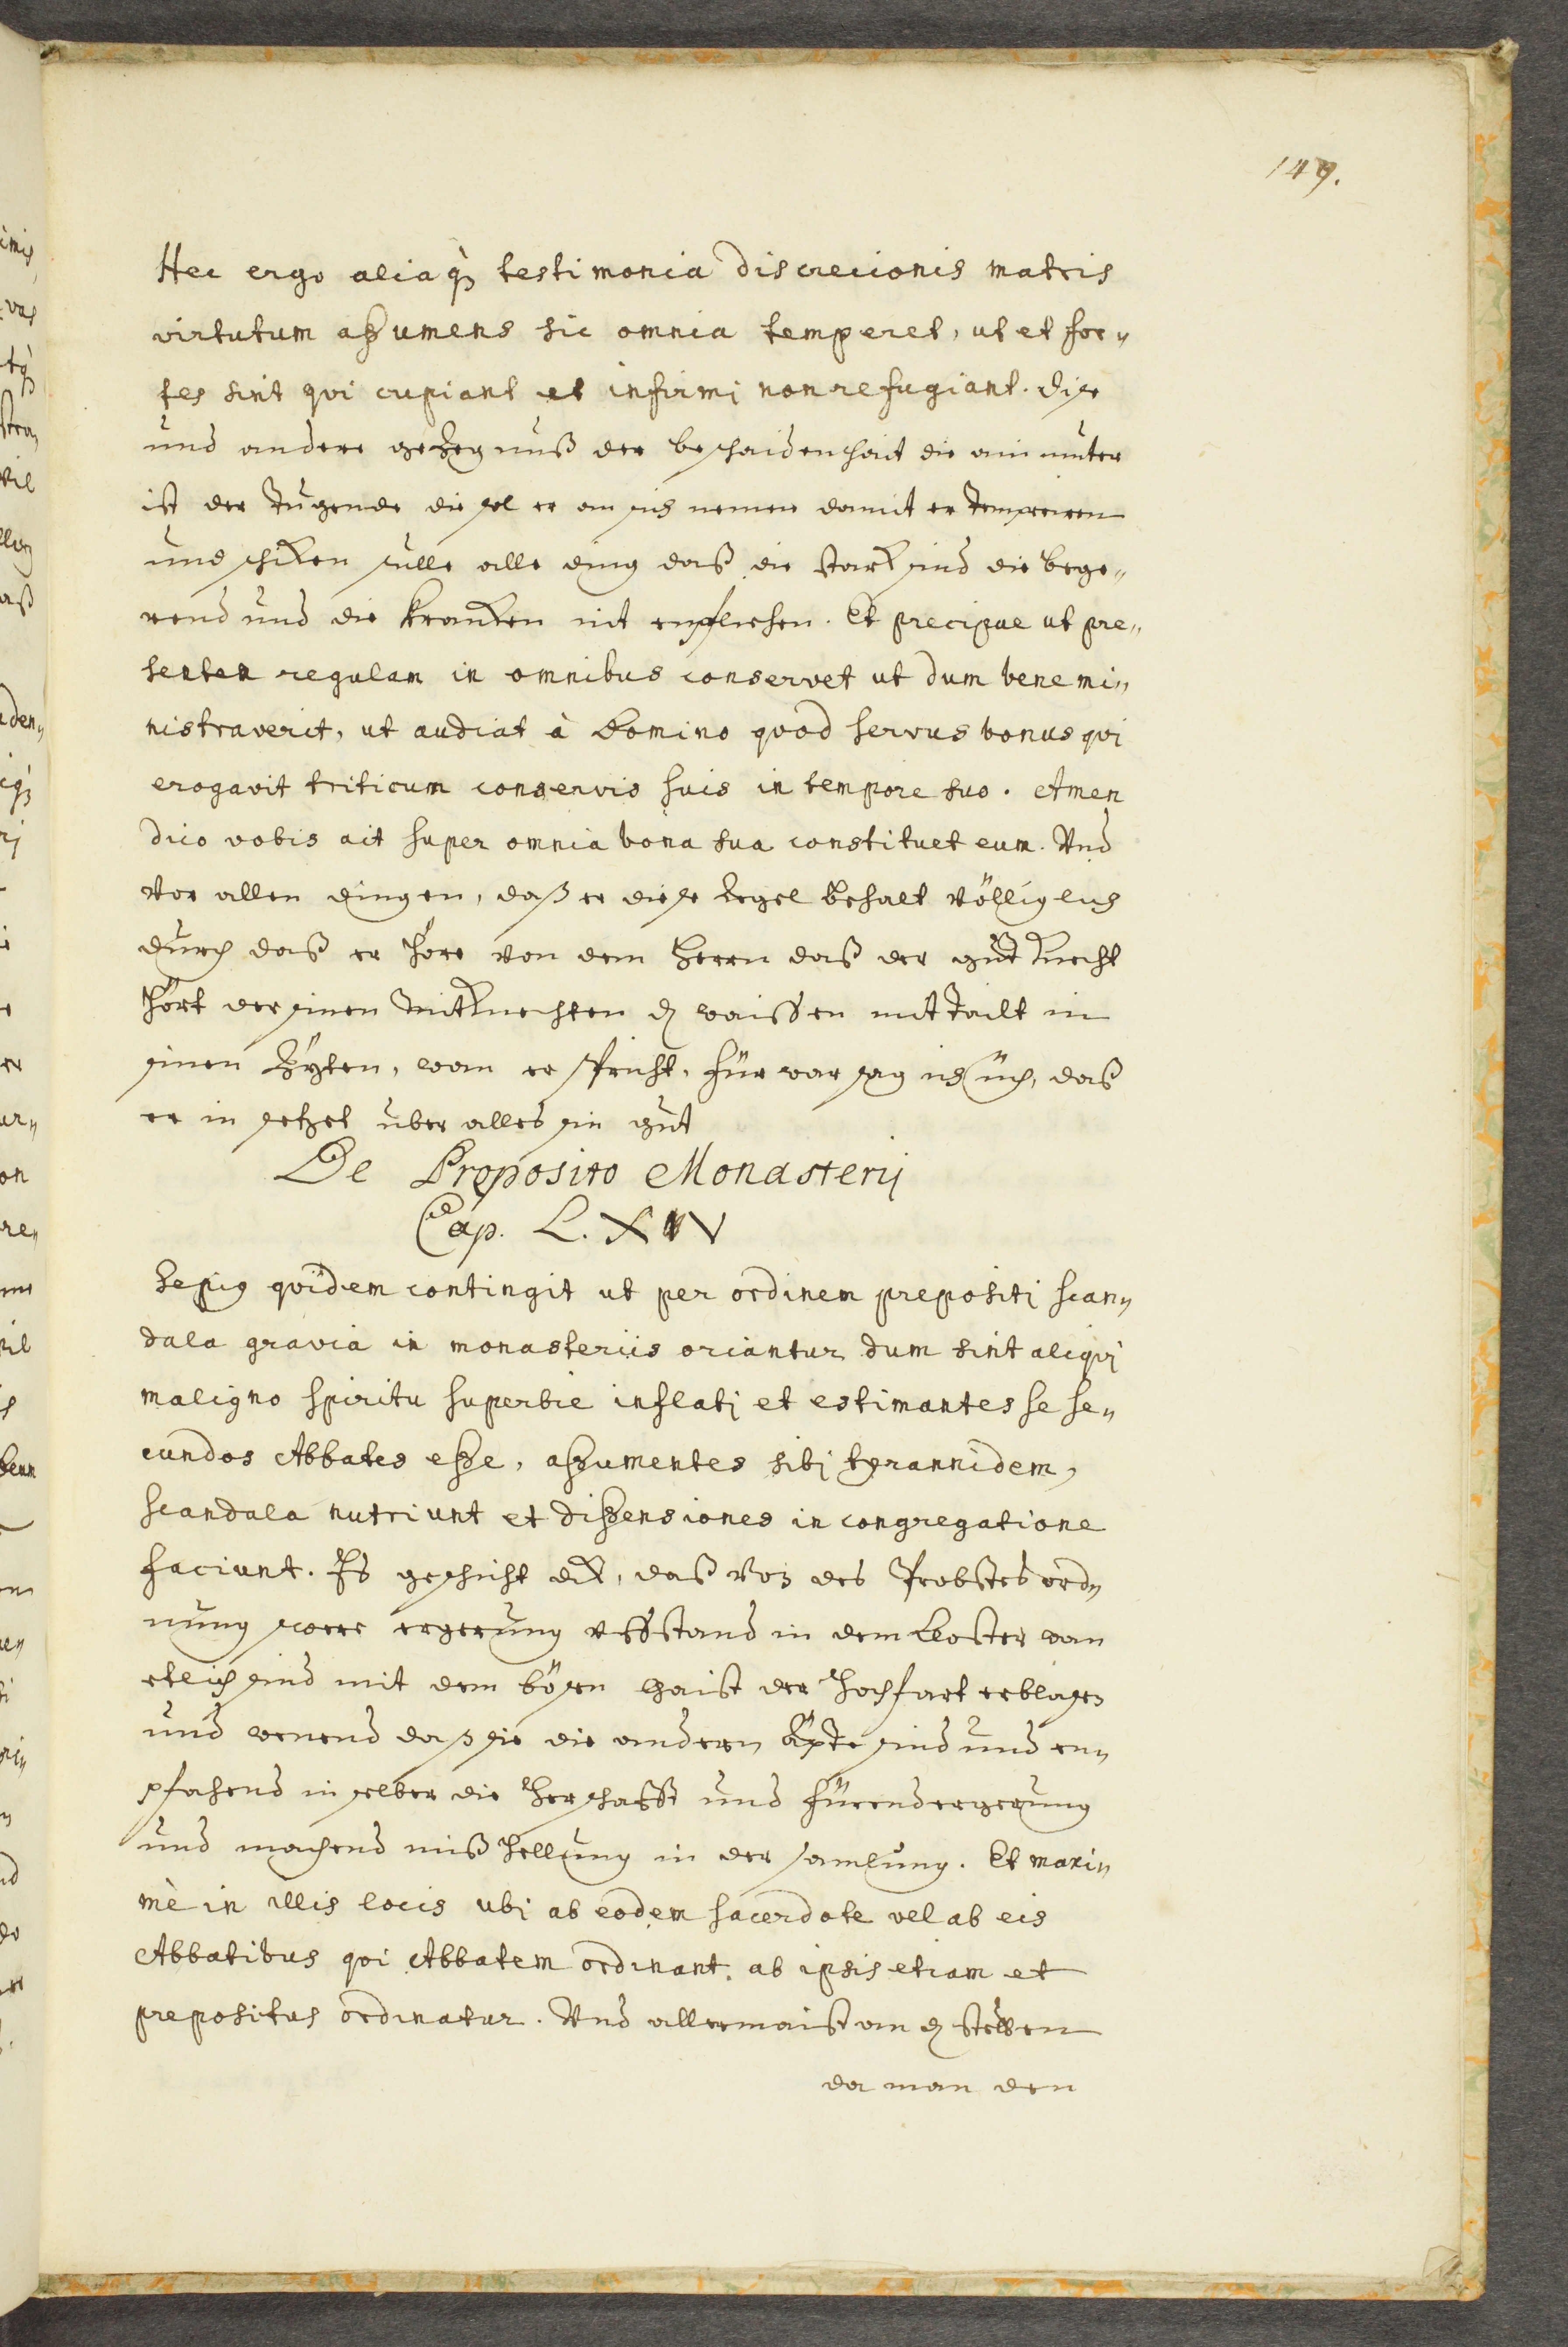 149.
Hec ergo aliaq̀₃ testimonia discrecionis matris
virtutum aßumens sic omnia temperet, ut et for„
tes sint qvi cupiant et infirmi non refugiant. dise
und andere gezeg nuß der beschaidenhait die ain muter
ist der Tugende die sol er an sich nemen damit er temperiren
und schiken sulle alle ding daß die stark sind die bege„
rend und die kranken nit enpfliehen. Et precipue ut pre„
senten regulam in omnibus conservet ut dum bene mi„
nistraverit, ut audiat à Domino qvod servus bonus qvi
erogavit triticum conservis suis in tempore suo. Amen
dico vobis ait super omnia bona sua constituet eum. Vnd
vor allen dingen, daß er diese Regel behalt völliglich
durch daß er höre von dem Herrn daß der gut knecht
hört der sinen mitknechten dz waissen mit tailt in
sinen Zyten, wan er spricht, für war sag ich üch, daß
er in setzet über alles sin gut
De Proposito Monasterij
Cap. L. XV
Sepius qvidem contingit ut per ordinem prepositi scan„
dala gravia in monasteriis oriantur dum sint aliqvi
maligno spiritu superbie inflati et estimantes se se„
cundos Abbates eße, aßumentes sibi tyrannidem,
scandala nutriunt et dißensiones in congregatione
faciunt. Es geschicht dik, daß von des Probstes ord„
nung swere ergerung uffstand in dem Closter wan
etlich sind mit dem bösen gaist der hochfart erblasen
und wenend daß sie die andern Äpte sind und en„
pfahend in selber die Herschafft und fürend ergerung
und machend mißhellung in der samlung. Et maxi„
mè in illis locis ubi ab eodem sacerdote vel ab eis
Abbatibus qvi Abbatem ordinant. ab ipsis etiam et
prepositus ordinatur. Vnd allermaist an dz stetten
da man den